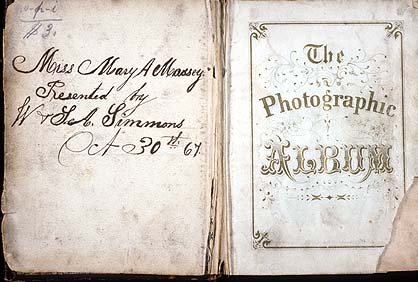 # 3.
Miss Mary A Massey.
Presented by
W & S. A. Simmons
Oct 30th 67
The
Photographic
ALBUM